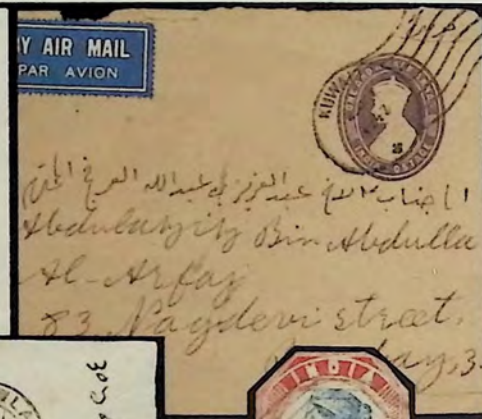 BY AIR MAIL
PAR AVION
KUWAIT
POSTAGE
الجناب الاخ عبدالعزيز بن عبدالله العرفج المحترم
Abdulaziz Bin Abdulla
Al-Arfaj
83 Nagdevi street,
Bombay, 3
INDIA